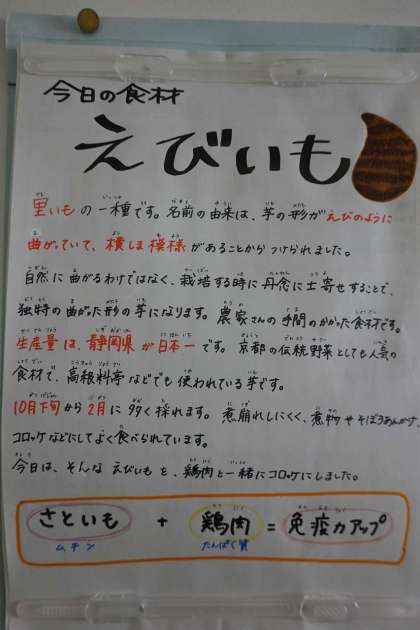 今日の食材
えびいも
里いもの一種です。名前の由来は、芋の形がえびのように
曲がっていて、横しま模様があることからつけられました。
自然に曲がるわけではなく、栽培する時に丹念に土寄せすることで、
独特の曲がった形の芋になります。農家さんの手間のかかった食材です。
生産量は、静岡県が日本一です。京都の伝統野菜としても人気の
食材で、高級料亭などでも使われている芋です。
10月下旬から2月に多く採れます。煮崩れしにくく、煮物やそぼろあんかけ、
コロッケなどにしてよく食べられています。
今日は、そんなえびいもを、鶏肉と一緒にコロッケにしました。
さといも + 鶏肉 = 免疫力アップ
ムチン たんぱく質